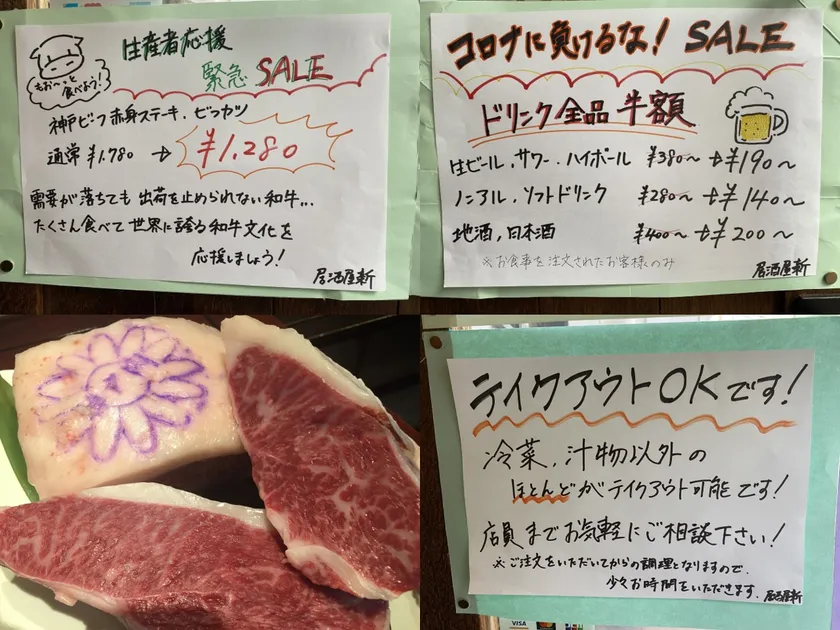 生産者応援
緊急 SALE
もぉ〜っと
食べよう!
神戸ビーフ 赤身ステーキ、ビフカツ
通常 ¥1,780 → ¥1,280
需要が落ちても 出荷を止められない和牛...
たくさん食べて 世界に誇る和牛文化を
応援しましょう!
居酒屋新
コロナに負けるな! SALE
ドリンク全品半額
生ビール、サワー、ハイボール ¥380〜→¥190〜
ノンアル、ソフトドリンク ¥280〜→¥140〜
地酒、日本酒 ¥400〜→¥200〜
※お食事を注文されたお客様のみ
居酒屋新
テイクアウトOKです!
冷菜、汁物以外の
ほとんどがテイクアウト可能です!
店員までお気軽にご相談下さい!
※ご注文をいただいてからの調理となりますので、
少々お時間をいただきます。居酒屋新
VISA